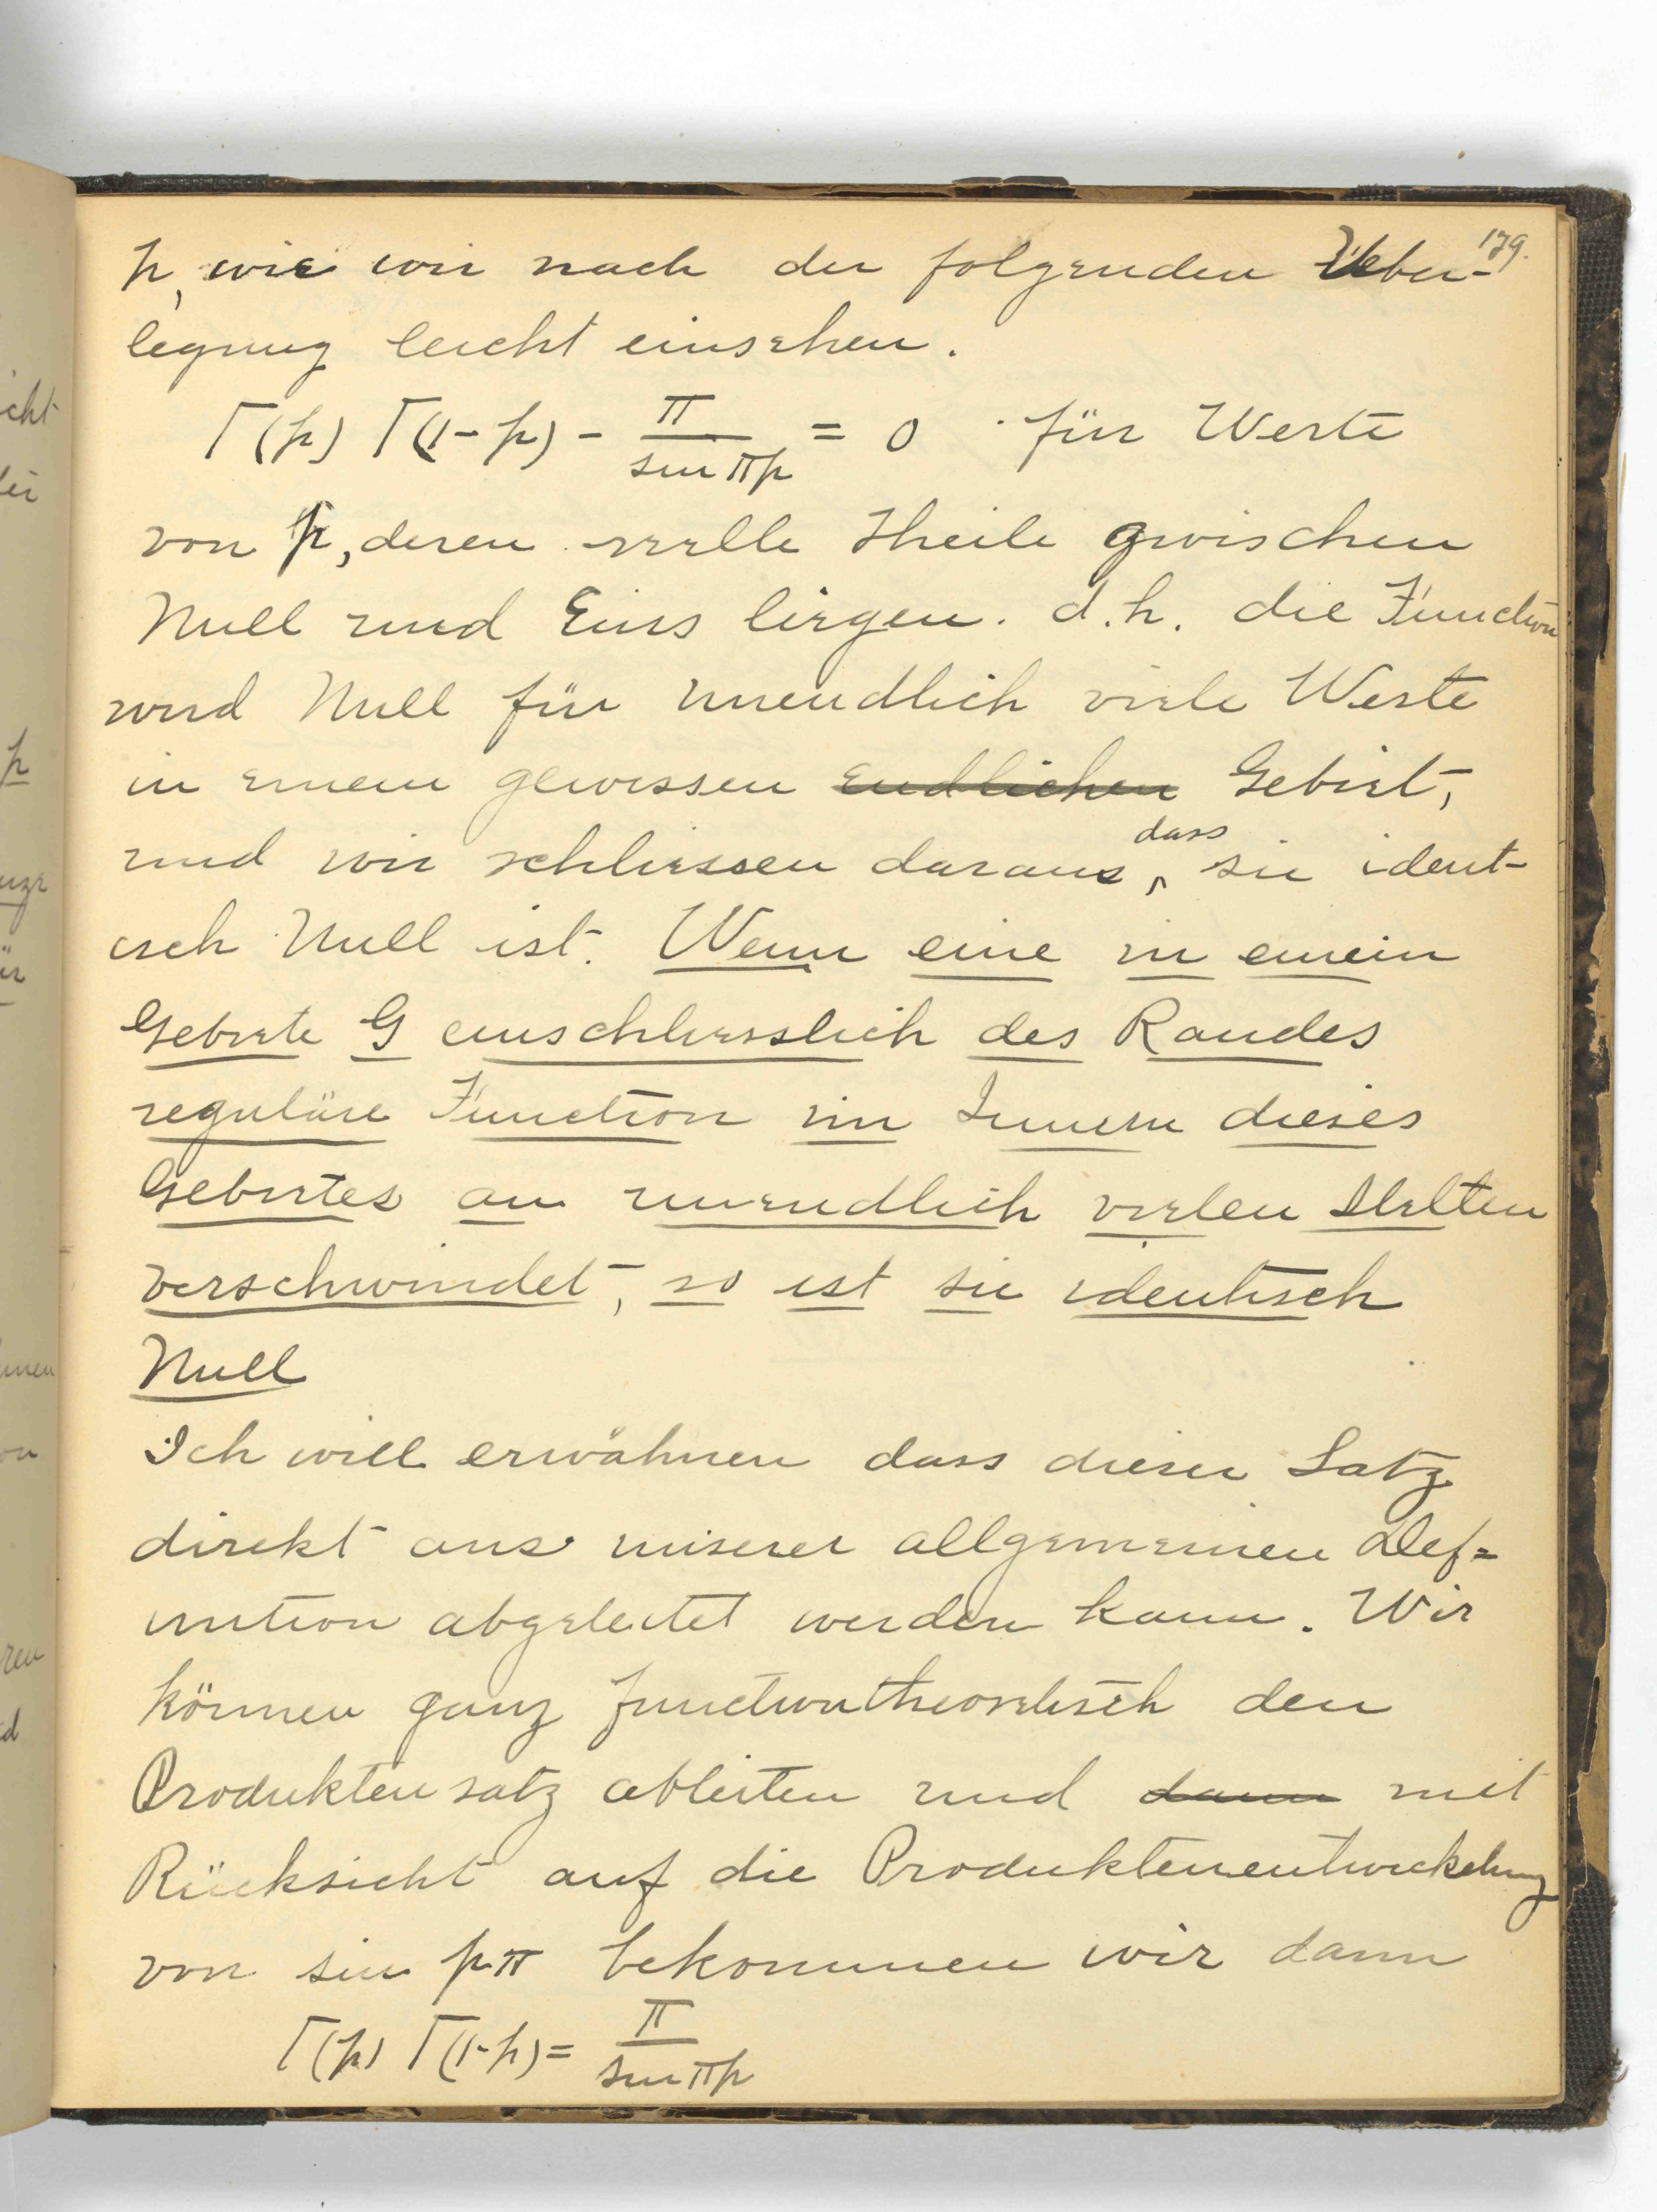 179.
p, wie wir nach der folgenden Ueber-
legung leicht einsehen.
Γ(p) Γ(1-p) - π/sin πp = 0 für Werte
von p, deren reelle Theile zwischen
Null und Eins liegen. d.h. die Function
wird Null für unendlich viele Werte
in einem gewissen endlichen Gebiet,
und wir schliessen daraus, dass sie ident-
isch Null ist. Wenn eine in einem
Gebiete G einschliesslich des Randes
reguläre Function im Innern dieses
Gebietes an unendlich vielen Stellen
verschwindet, so ist sie identisch
Null
Ich will erwähnen dass dieser Satz
direkt aus unserer allgemeinen Def=
inition abgeleitet werden kann. Wir
können ganz functiontheoretisch den
Produktensatz ableiten und dann mit
Rücksicht auf die Produktenentwickelung
von sin pπ bekommen wir dann
Γ(p) Γ(1-p) = π/sin πp
cht
ei
p
nze
ür
men
on
ren
d